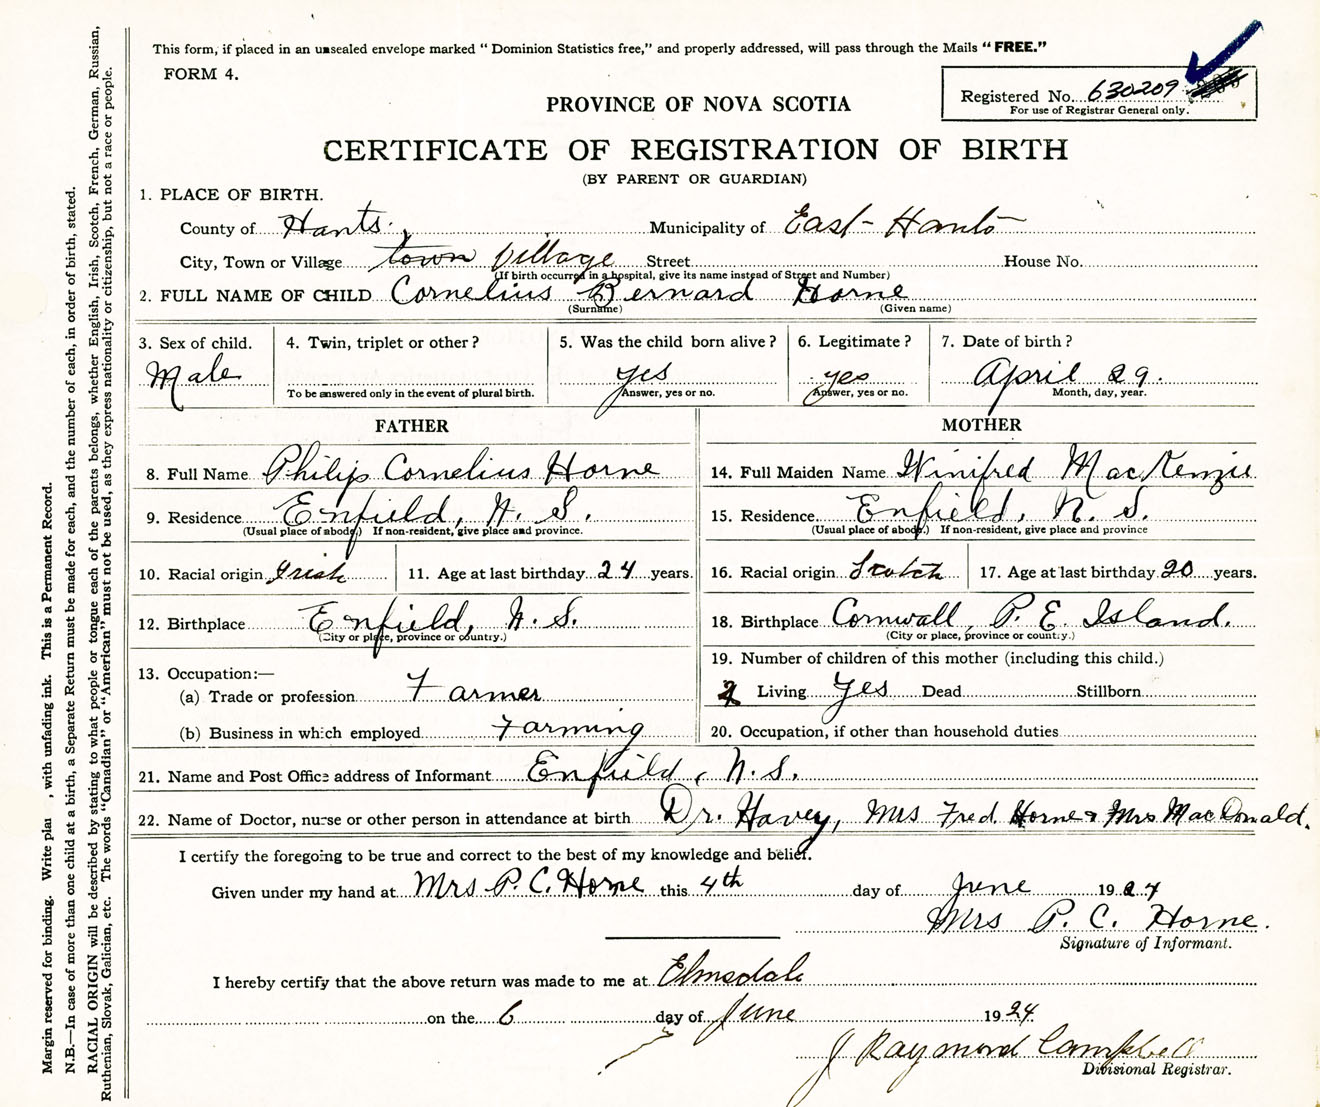 This form, if placed in an unsealed envelope marked “ Dominion Statistics free,” and properly addressed, will pass through the Mails “ FREE.”
FORM 4.
Registered No. 630209
For use of Registrar General only.
PROVINCE OF NOVA SCOTIA
CERTIFICATE OF REGISTRATION OF BIRTH
(BY PARENT OR GUARDIAN)
1. PLACE OF BIRTH.
County of Hants. Municipality of East Hants
City, Town or Village town village Street House No.
(If birth occurred in a hospital, give its name instead of Street and Number)
2. FULL NAME OF CHILD Cornelius Bernard Horne
(Surname) (Given name)
3. Sex of child. 4. Twin, triplet or other? 5. Was the child born alive? 6. Legitimate? 7. Date of birth?
Male yes yes April 29.
To be answered only in the event of plural birth. Answer, yes or no. Answer, yes or no. Month, day, year.
FATHER MOTHER
8. Full Name Philip Cornelius Horne 14. Full Maiden Name Winifred MacKenzie
9. Residence Enfield, N. S. 15. Residence Enfield, N. S.
(Usual place of abode.) If non-resident, give place and province. (Usual place of abode.) If non-resident, give place and province
10. Racial origin Irish 11. Age at last birthday 24 years. 16. Racial origin Scotch 17. Age at last birthday 20 years.
12. Birthplace Enfield, N. S. 18. Birthplace Cornwall, P. E. Island.
(City or place, province or country.) (City or place, province or country.)
13. Occupation:— 19. Number of children of this mother (including this child.)
(a) Trade or profession Farmer 2 Living Yes Dead Stillborn
(b) Business in which employed Farming 20. Occupation, if other than household duties
21. Name and Post Office address of Informant Enfield, N. S.
22. Name of Doctor, nurse or other person in attendance at birth Dr. Havey, Mrs Fred Horne & Mrs MacDonald.
I certify the foregoing to be true and correct to the best of my knowledge and belief.
Given under my hand at Mrs P. C. Horne this 4th day of June 1924
Mrs P. C. Horne.
Signature of Informant.
I hereby certify that the above return was made to me at Elmsdale
on the 6 day of June 1924
J Raymond Campbell
Divisional Registrar.
Margin reserved for binding. Write , with unfading ink. This is a Permanent Record.
N.B.—In case of more than one child at a birth, a Separate Return must be made for each, and the number of each, in order of birth, stated.
RACIAL ORIGIN will be described by stating to what people or tongue each of the parents belongs, whether English, Irish, Scotch, French, German, Russian,
Ruthenian, Slovak, Galician, etc. The words “Canadian” or “American” must not be used, as they express nationality or citizenship, but not a race or people.